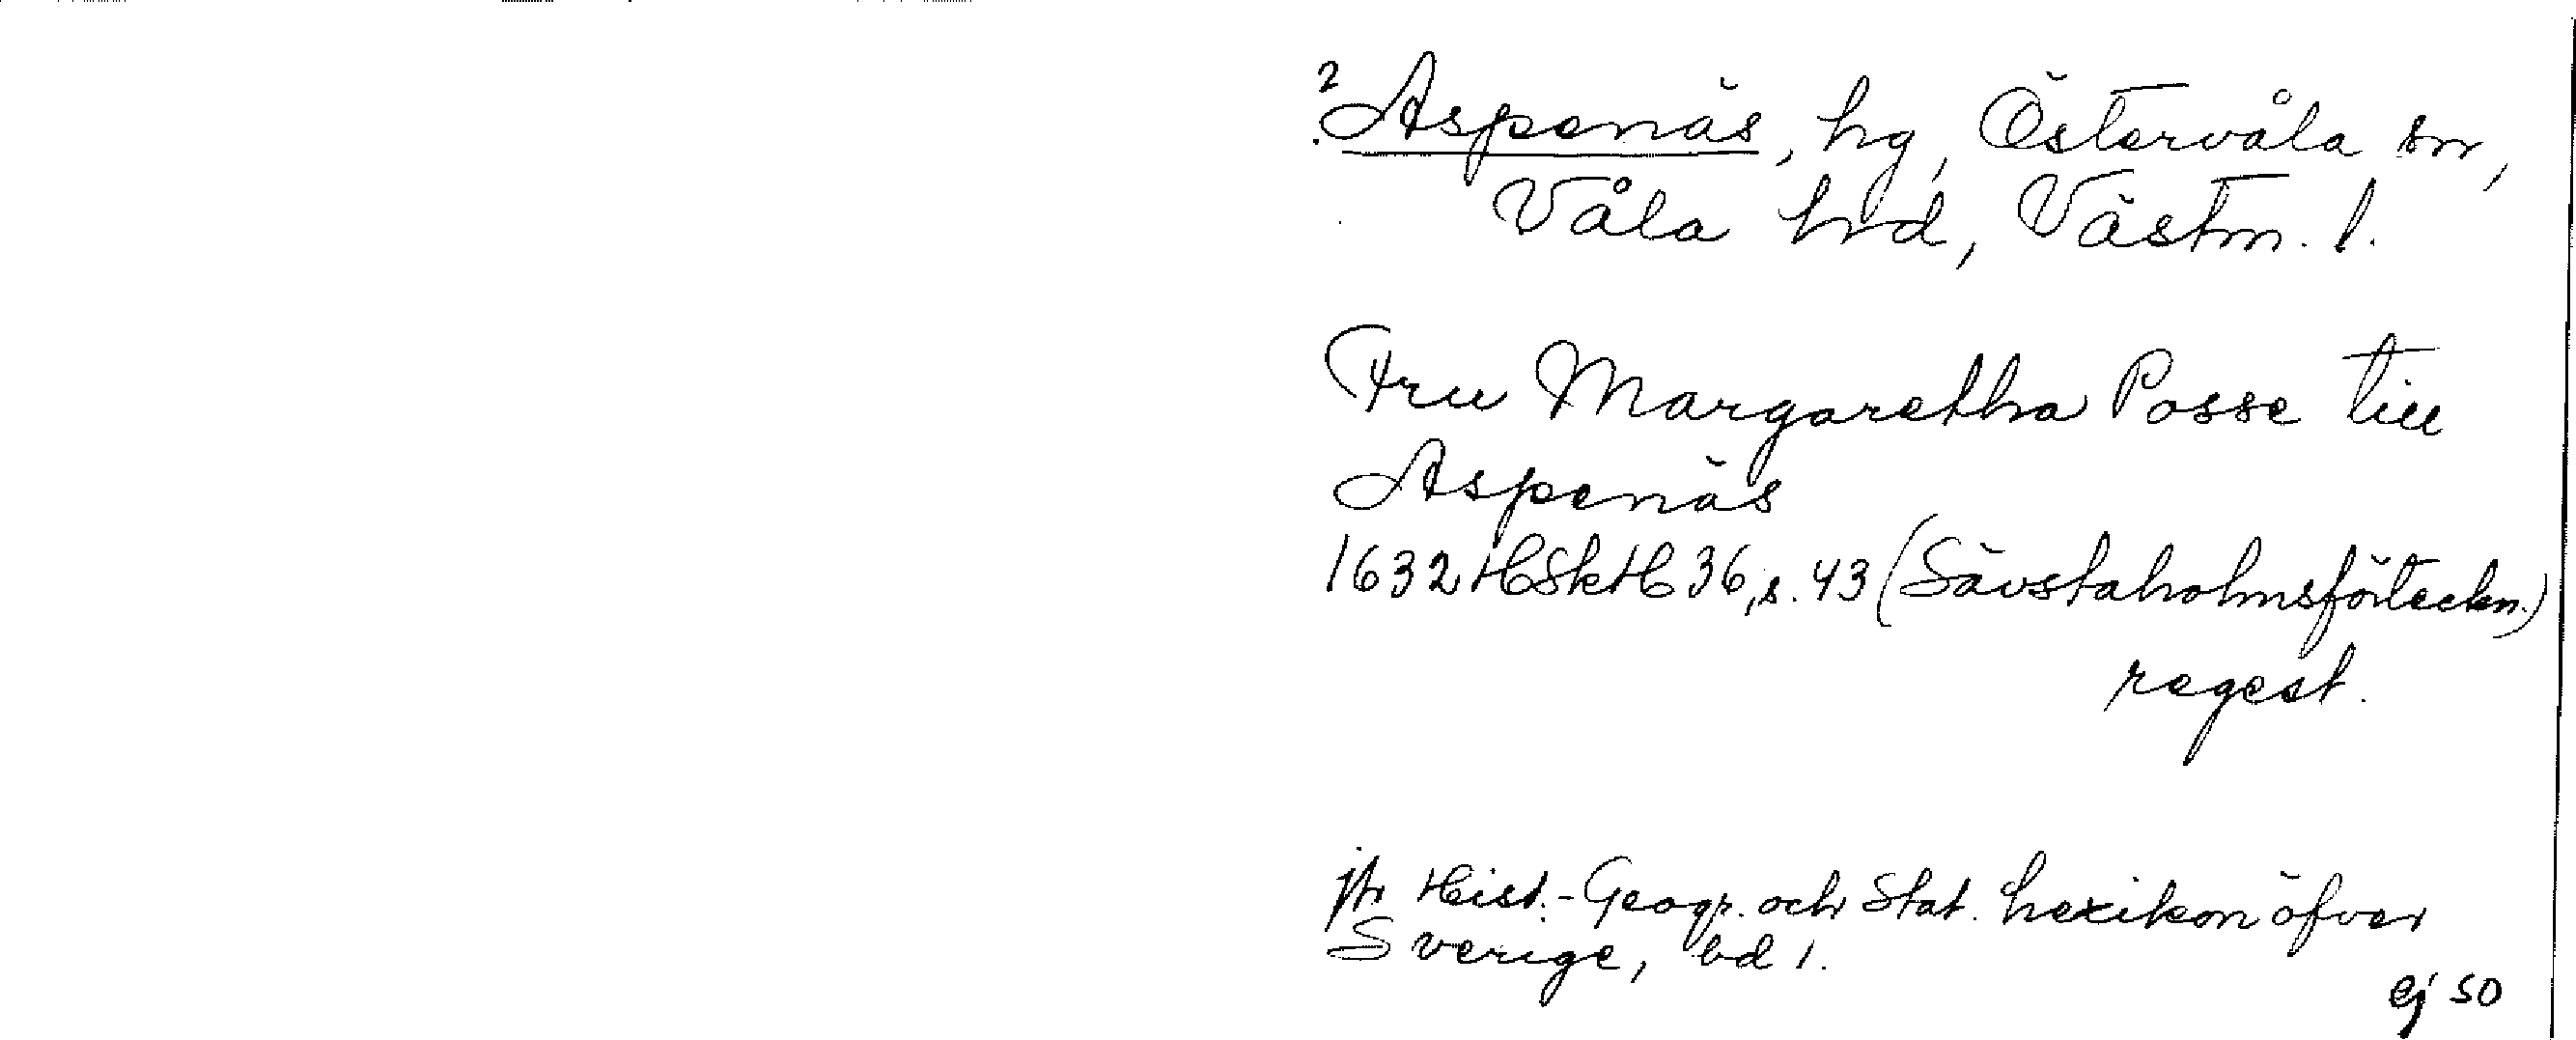 ? Aspenäs, hg, Östervåla sn,
Våla hrd, Västm. l.
Fru Margaretha Posse till
Aspenäs
1632 HSkH 36, s. 43 (Sävstaholmsförteckn.)
regest.
jfr Hist.-Geogr. och Stat. Lexikon öfver
Sverige, bd 1.
ej SO